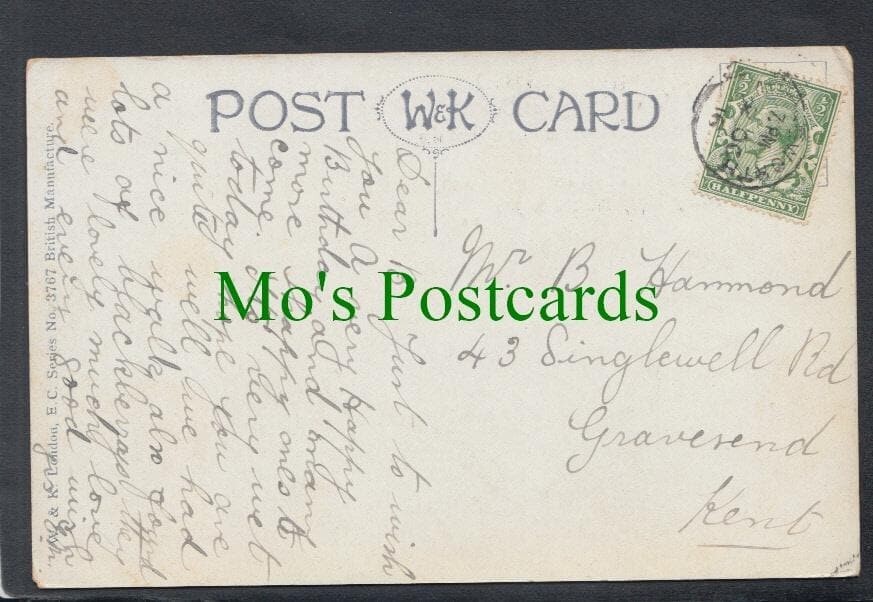 POST W&K CARD
HALFPENNY
7.PM
Mr B Hammond
43 Singlewell Rd
Gravesend
Kent
Mo's Postcards
Dear B Just to wish
you A very Happy
Birthday and many
more Happy ones to
come. Its very wet
today hope you are
quite well we had
a nice walk also found
lots of blackberrys they
were lovely much love
and every good wish
W. & K. London, E.C. Series No. 3767 British Manufacture.